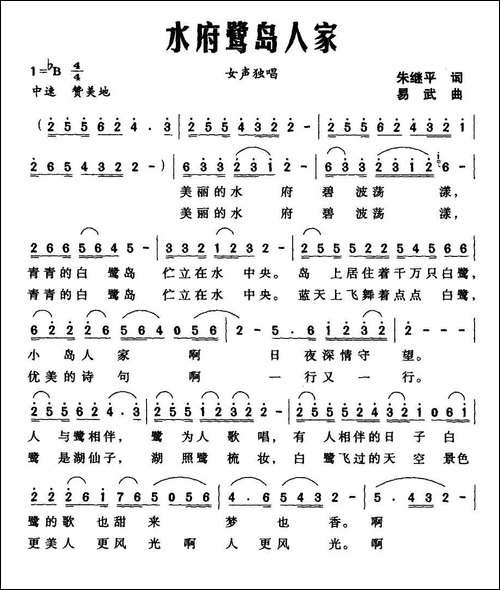 水府鹭岛人家
1=♭B 4/4
女声独唱
朱继平 词
中速 赞美地
易武 曲
(2 5 5 6 2 4 . 3 | 2 5 5 1 2 2 - | 2 5 5 6 2 4 3 2 1 |
2 6 5 4 3 2 2 - ) | 6 3 3 0 3 2 3 1 2 | 6 3 3 0 3 2 3 1 2 6 - |
美丽的水 府 碧 波荡 漾,
美丽的水 府 碧 波荡 漾,
2 6 6 5 6 4 5 - | 3 3 2 1 2 3 2 - | 2 5 5 5 5 2 3 5 5 6 5 |
青青的白 鹭岛 伫立在水 中央。岛 上居住着千万只白鹭,
青青的白 鹭岛 伫立在水 中央。蓝天上飞舞着点点 白鹭,
6 2 2 2 6 5 6 4 0 5 6 | 2 - 2 - | 5 . 6 1 2 3 2 - |
小岛人家 啊 日 夜深情守 望。
优美的诗 句 啊 一 行又一 行。
2 5 5 6 2 4 . 3 | 2 5 5 1 2 3 2 2 - | 2 5 5 6 2 4 3 2 1 0 6 1 |
人 与鹭相伴, 鹭 为人 歌 唱, 有 人相伴的日 子 白
鹭 是湖仙子, 湖 照鹭 梳 妆, 白 鹭飞过的天 空 景色
2 2 2 6 1 7 6 5 0 5 6 | 4 . 6 5 4 3 2 - | 5 . 4 3 2 - |
鹭的歌 也甜 来 梦 也 香。啊
更美人 更风 光 啊 人 更风 光。啊